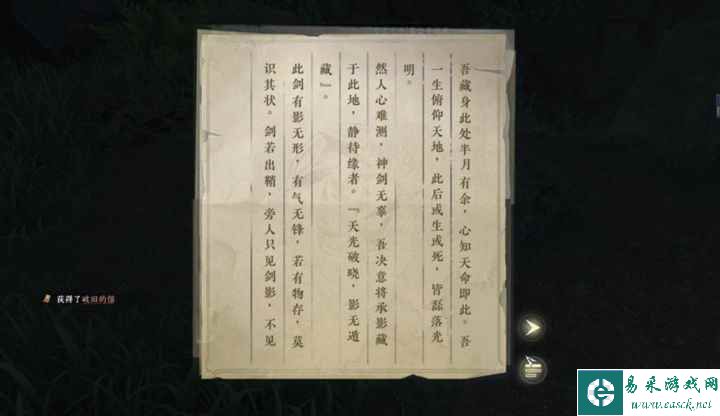 吾藏身此处半月有余，心知天命即此。吾
一生俯仰天地，此后或生或死，皆磊落光
明。
然人心难测，神剑无辜，吾决意将承影藏
于此地，静待缘者。『天光破晓，影无遁
藏』。
此剑有影无形，有气无锋，若有物存，莫
识其状。剑若出鞘，旁人只见剑影，不见
获得了破旧的信
易采游戏网
www.easck.net